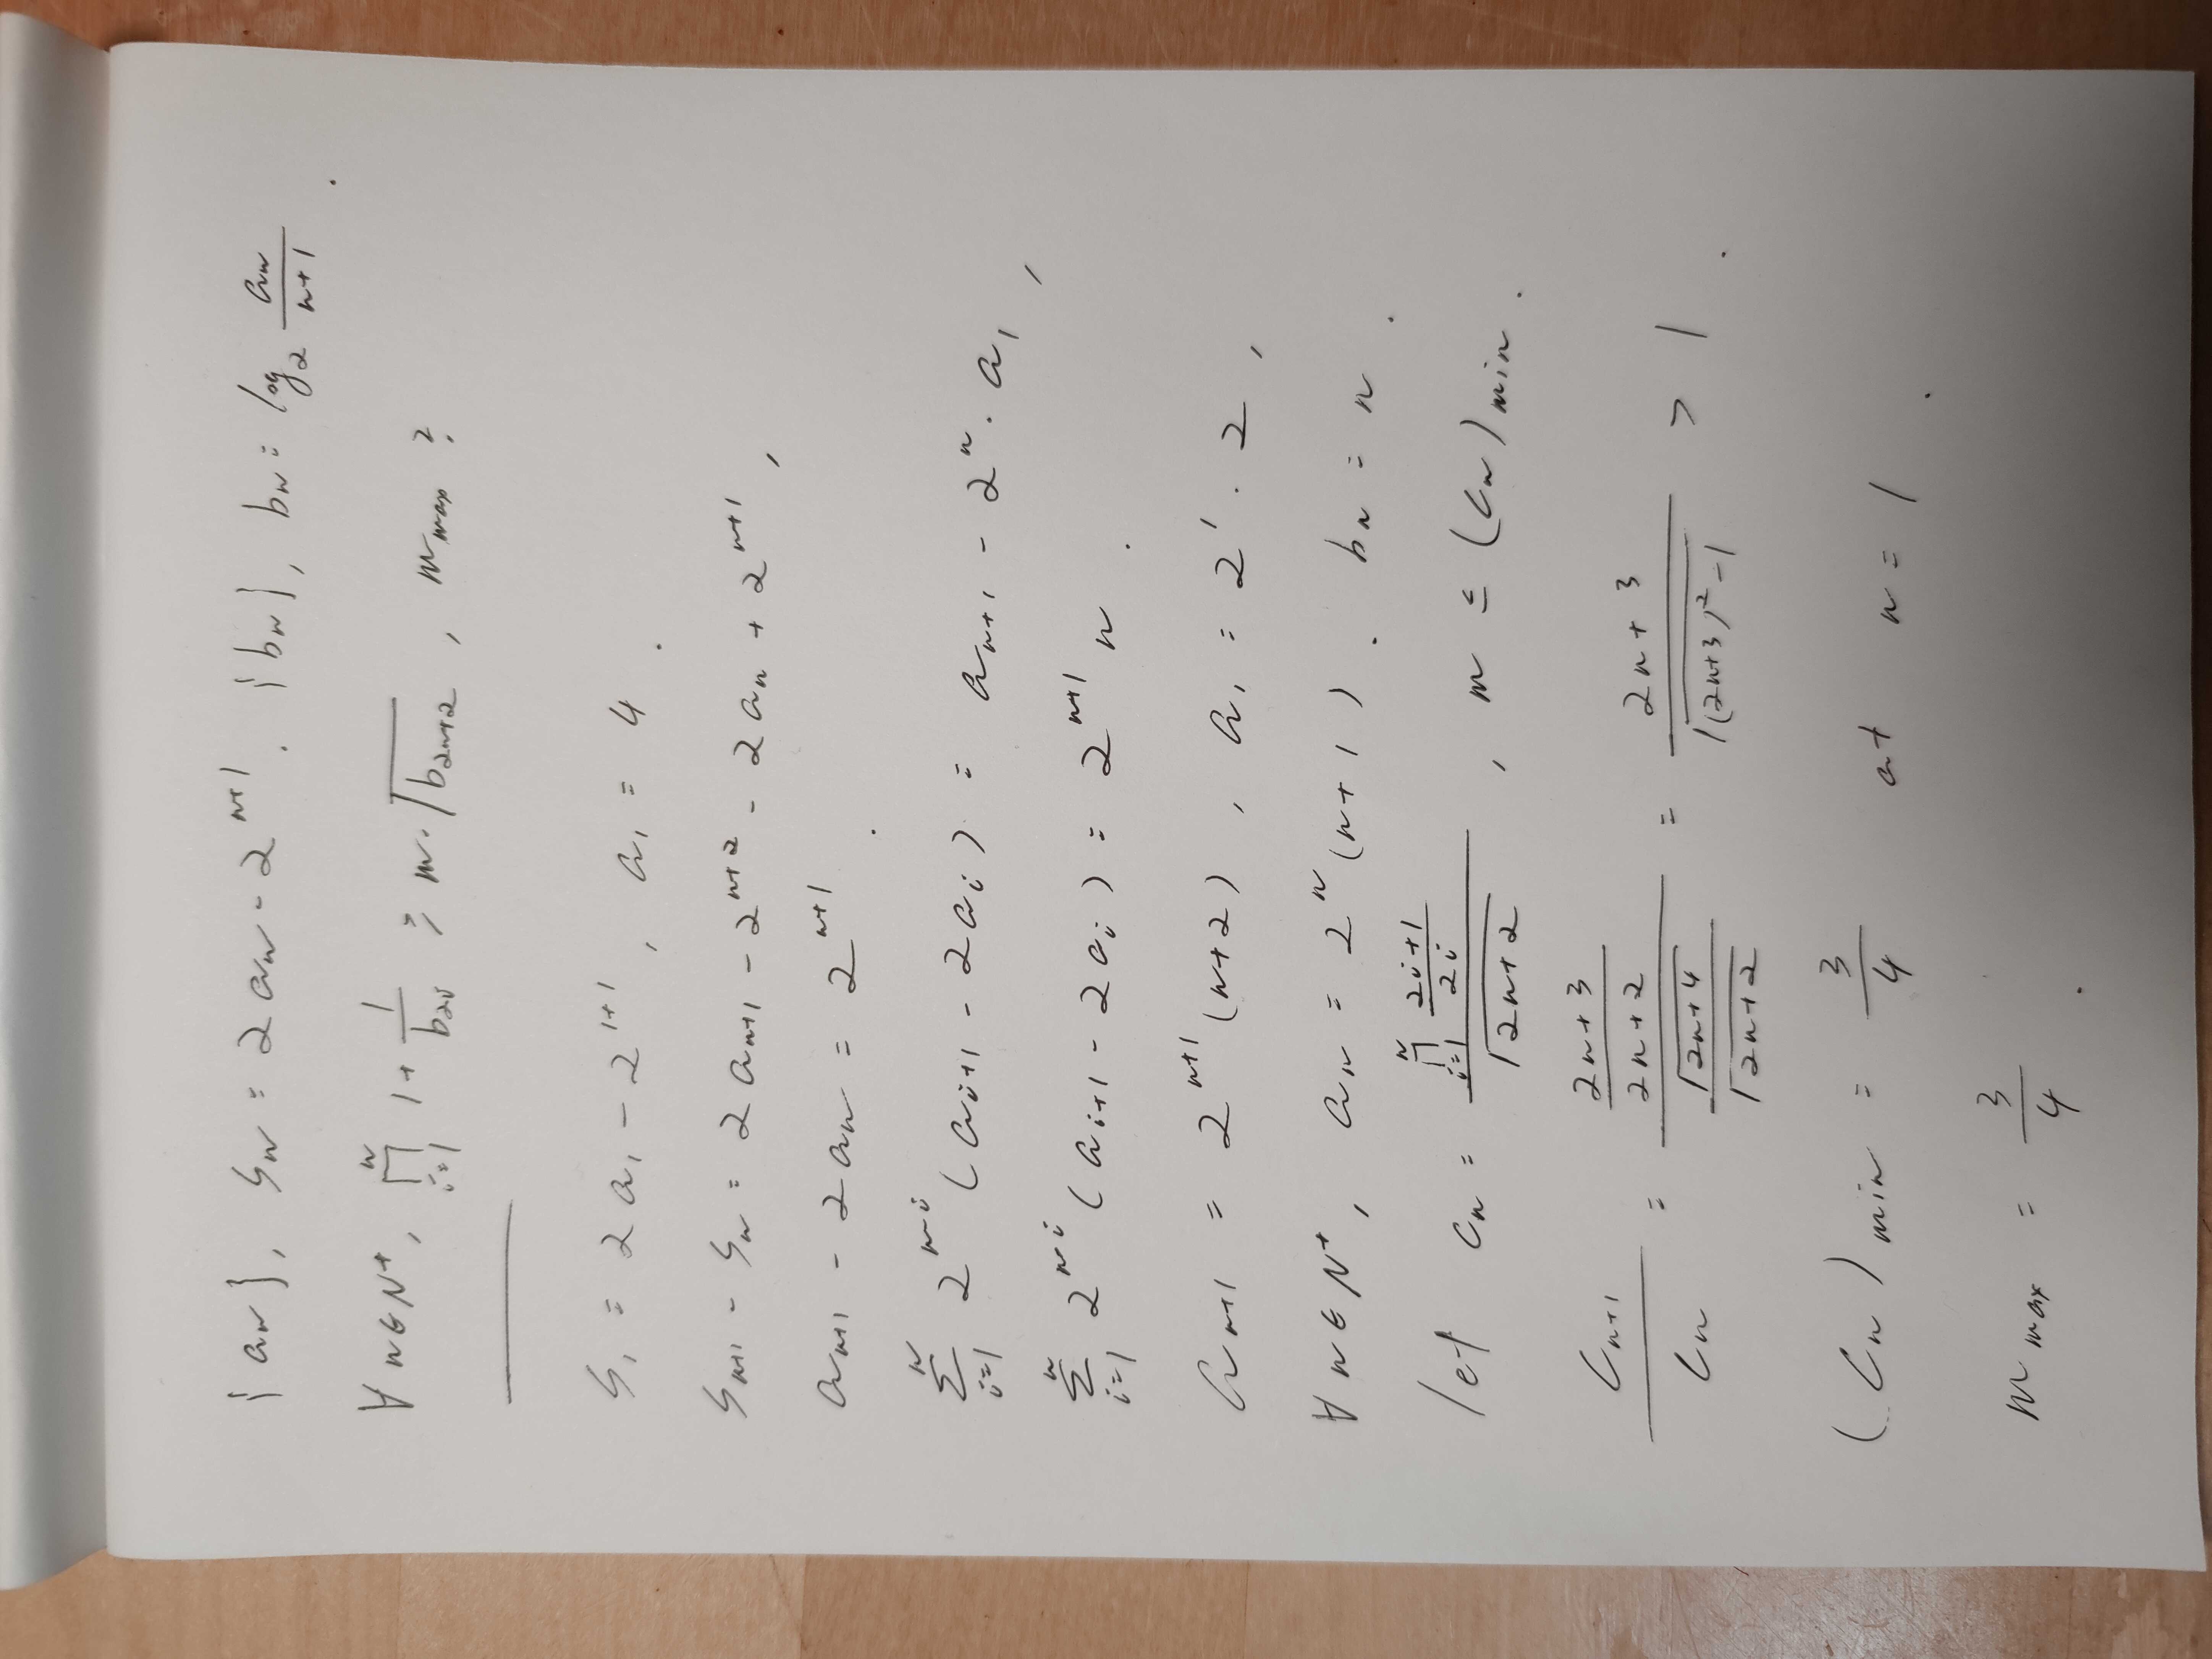 {aₙ}, Sₙ = 2aₙ - 2ⁿ⁺¹. {bₙ}, bₙ = log₂ \frac{aₙ}{n+1}.
∀n∈N⁺, \prod_{i=1}^{n} 1 + \frac{1}{b_{2i}} ≥ m·\sqrt{b_{2n+2}}, m_{max}?
S₁ = 2a₁ - 2¹⁺¹, a₁ = 4.
Sₙ₊₁ - Sₙ = 2aₙ₊₁ - 2ⁿ⁺² - 2aₙ + 2ⁿ⁺¹,
aₙ₊₁ - 2aₙ = 2ⁿ⁺¹.
\sum_{i=1}^{n} 2^{n-i} (a_{i+1} - 2a_i) = a_{n+1} - 2ⁿ·a₁,
\sum_{i=1}^{n} 2^{n-i} (a_{i+1} - 2a_i) = 2ⁿ⁺¹ n.
aₙ₊₁ = 2ⁿ⁺¹ (n+2), a₁ = 2¹·2,
∀n∈N⁺, aₙ = 2ⁿ (n+1). bₙ = n.
let cₙ = \frac{\prod_{i=1}^{n} \frac{2i+1}{2i}}{\sqrt{2n+2}}, m ≤ (cₙ)_{min}.
\frac{c_{n+1}}{c_n} = \frac{\frac{2n+3}{2n+2}}{\frac{\sqrt{2n+4}}{\sqrt{2n+2}}} = \frac{2n+3}{\sqrt{(2n+3)²-1}} > 1.
(cₙ)_{min} = \frac{3}{4} at n = 1.
m_{max} = \frac{3}{4}.